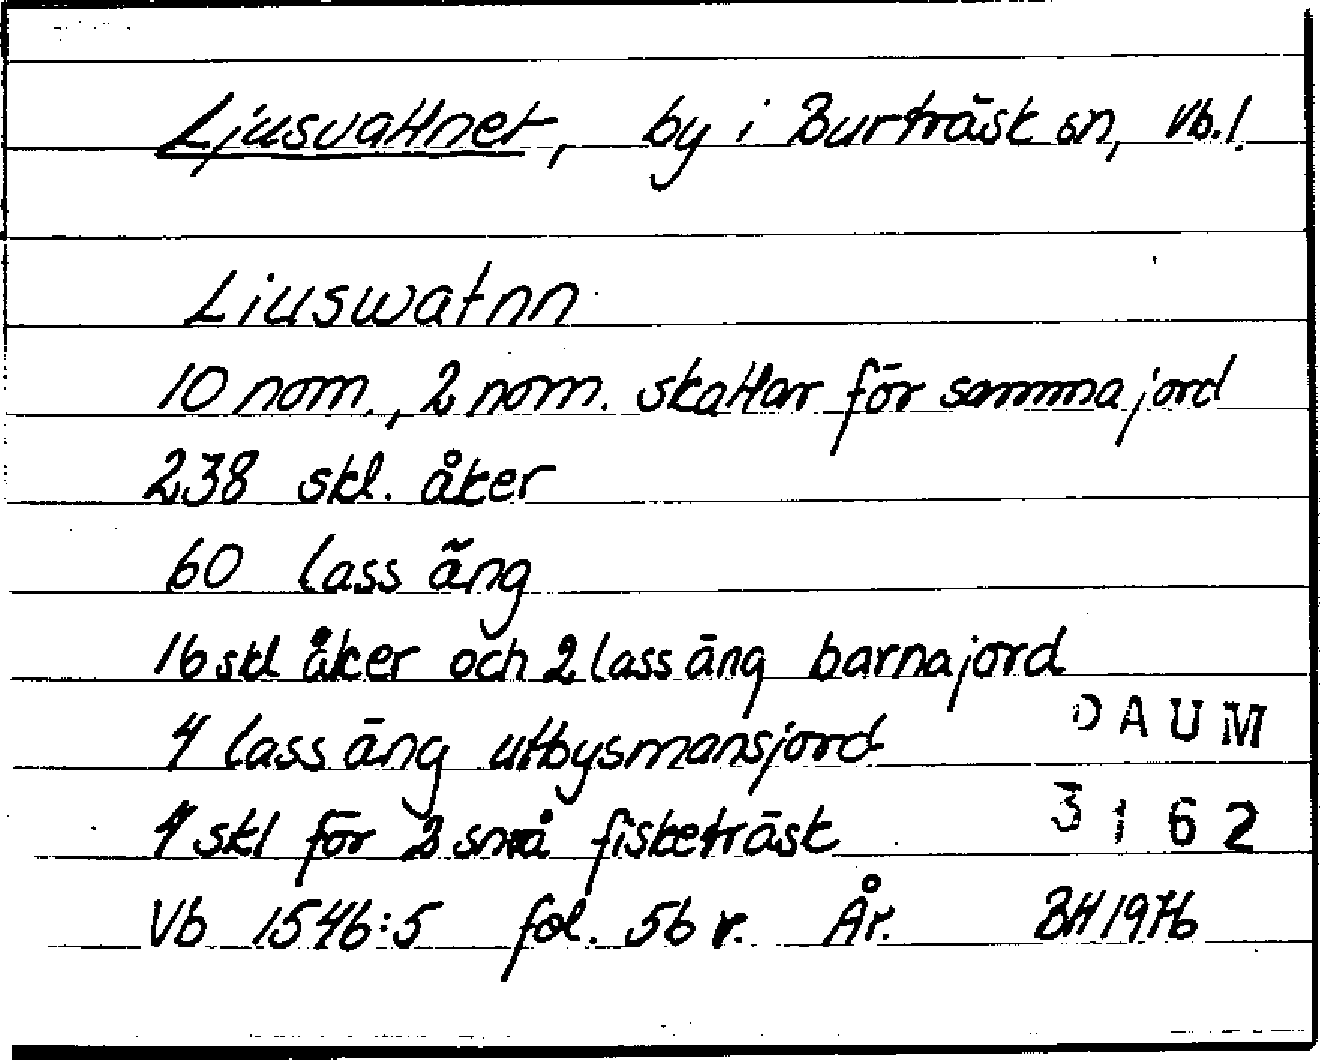 Ljusvattnet, by i Burträsk sn, Vb. l.
Liuswatnn
10 nom., 2 nom. skattar för samma jord
238 skl. åker
60 lass äng
16 skl åker och 2 lass äng barnajord
4 lass äng utbysmansjord
DAUM
4 skl för 3 små fisketräsk
3162
Vb 1546:5 fol. 56 r. År. BH 1976